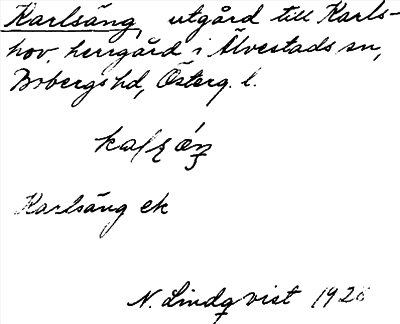 Karlsäng, utgård till Karls-
hov, herrgård i Älvestads sn,
Bobergs hd, Österg. l.
Karlsäng ek
N. Lindqvist